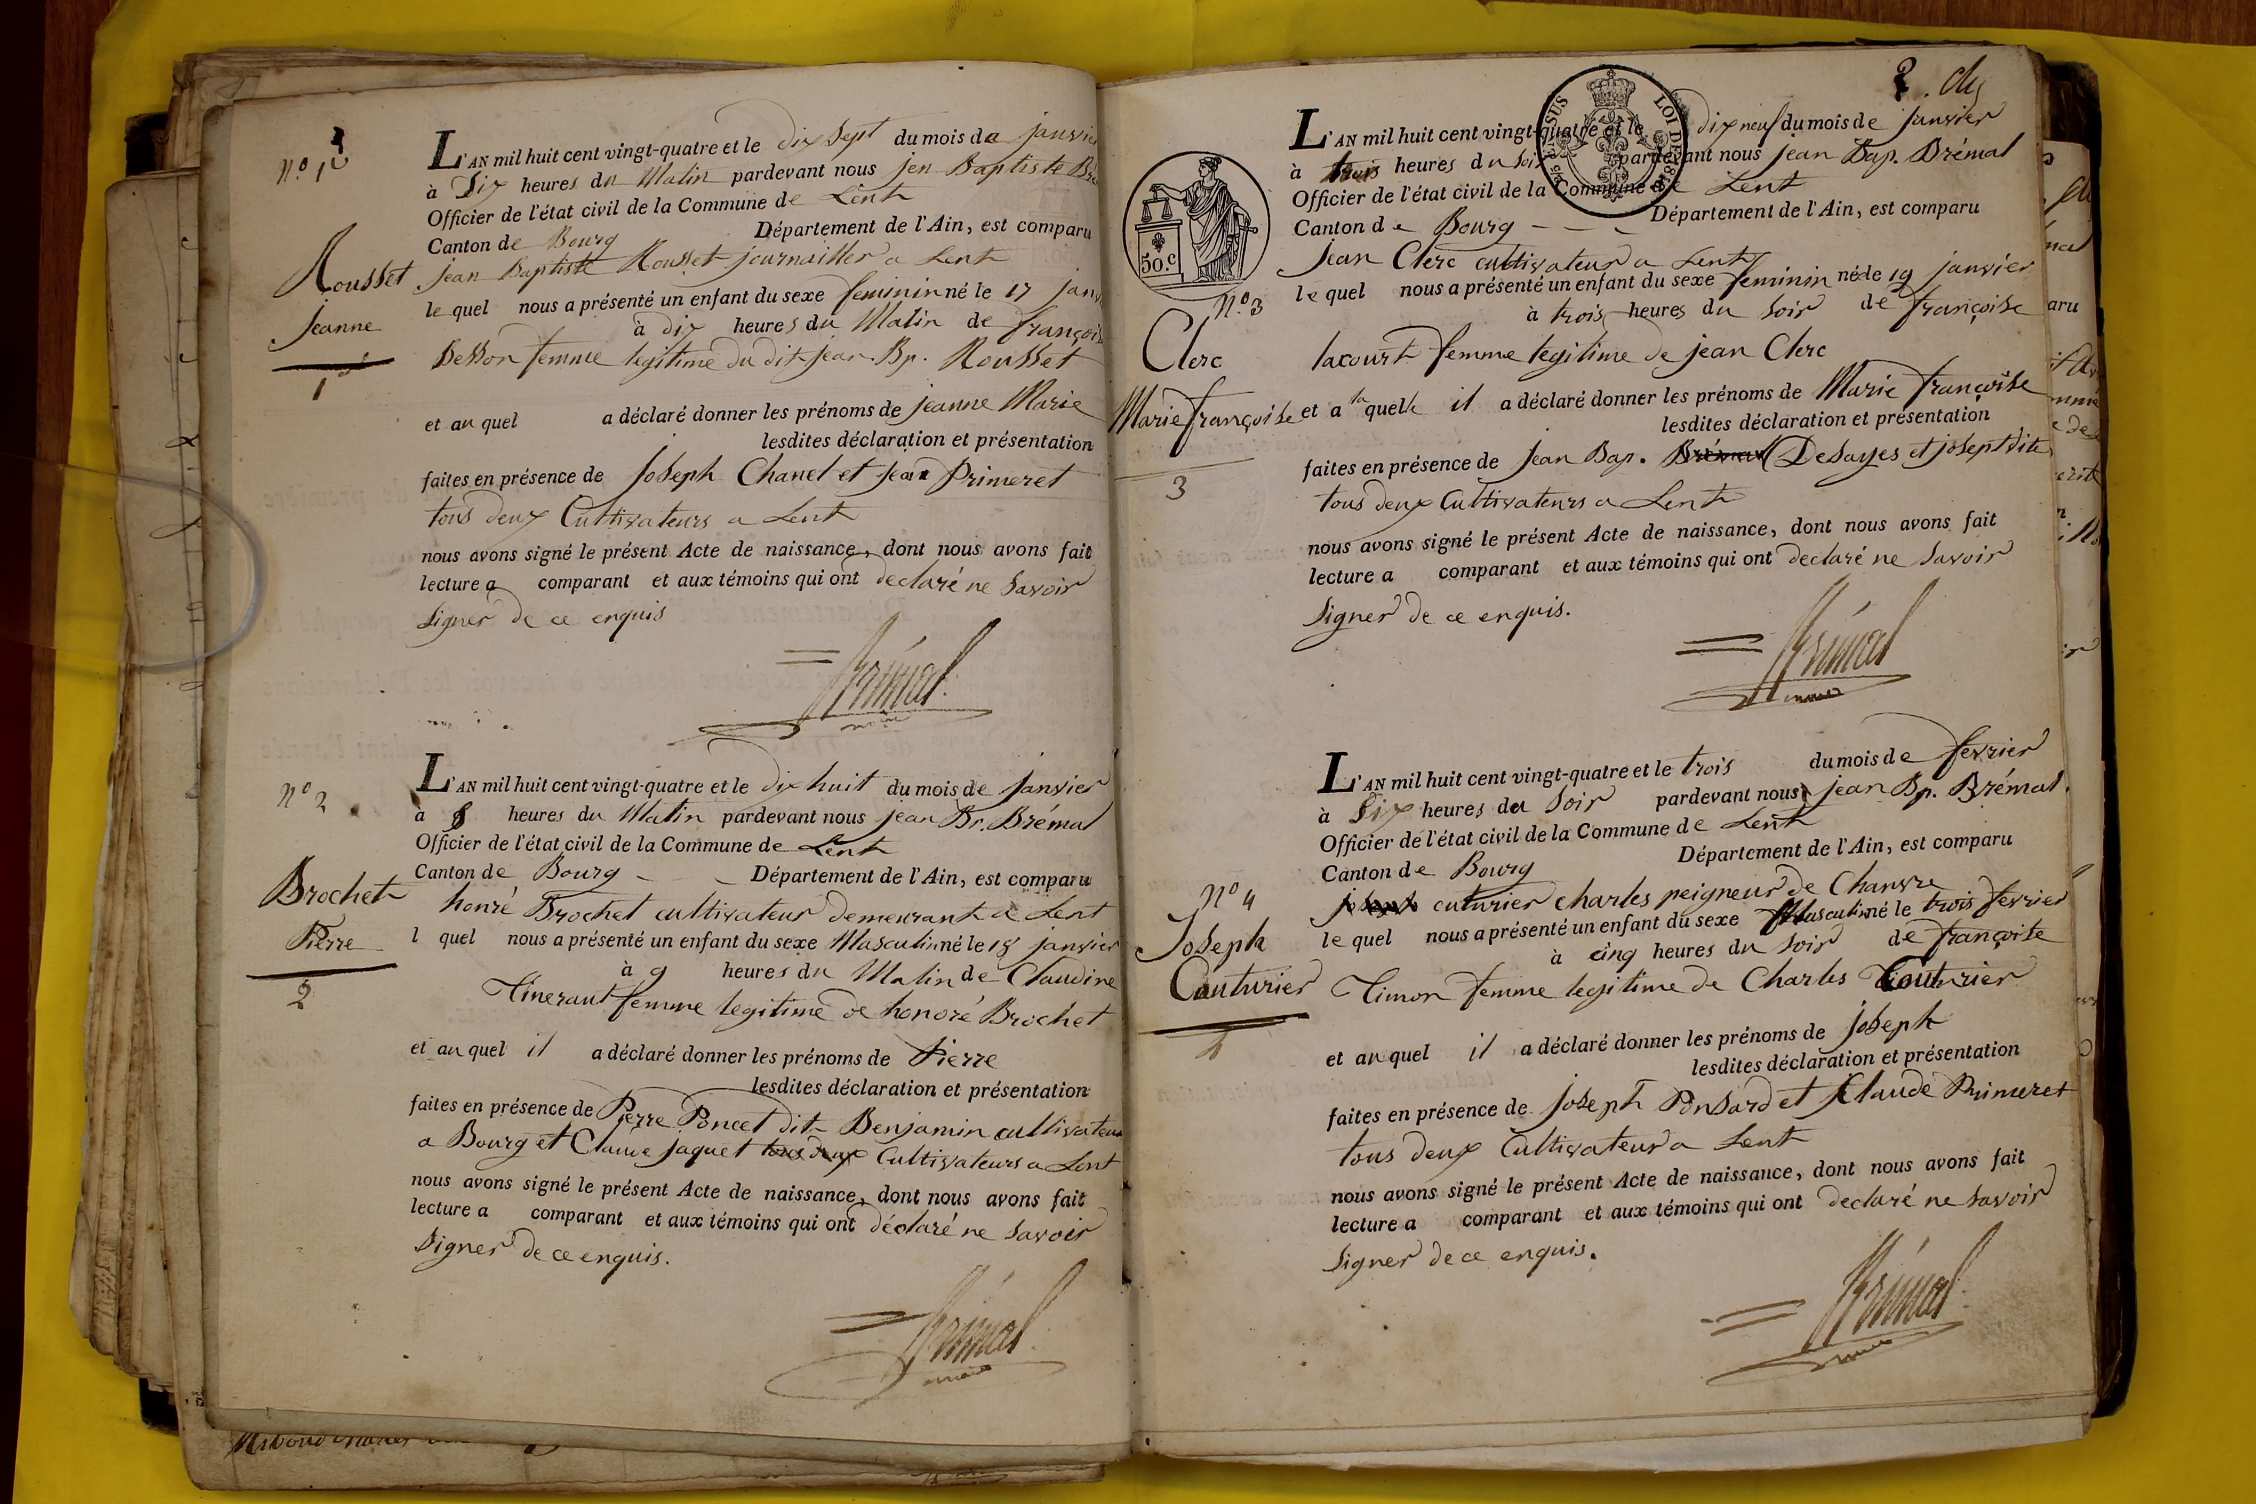 N.º 1
Rousset
Jeanne
1
L'AN mil huit cent vingt-quatre et le dix sept du mois de janvier
à Dix heures du Matin pardevant nous jen Baptiste
Officier de l'état civil de la Commune de Lent
Canton de Bourg Département de l'Ain, est comparu
jean Baptiste Rousset journaillier a Lent
le quel nous a présenté un enfant du sexe feminin né le 17
à dix heures du Matin de
femme legitime du dit jean Bp. Rousset
et au quel a déclaré donner les prénoms de jeanne Marie
lesdites déclaration et présentation
faites en présence de joseph Chanel et jean Primeret
tous deux Cultivateurs a Lent
nous avons signé le présent Acte de naissance, dont nous avons fait
lecture a comparant et aux témoins qui ont declaré ne Savoir
Signer de ce enquis
Brémal
Nº 2
Brochet
Pierre
2
L'AN mil huit cent vingt-quatre et le dix huit du mois de janvier
à heures du Matin pardevant nous jean Bp. Brémal
Officier de l'état civil de la Commune de Lent
Canton de Bourg - - Département de l'Ain, est comparu
honré Brochet cultivateur demeurant a Lent
l quel nous a présenté un enfant du sexe Masculin né le 18 janvier
à 9 heures du Matin de Claudine
femme legitime de honoré Brochet
et au quel il a déclaré donner les prénoms de Pierre
lesdites déclaration et présentation
faites en présence de Pierre Poncet dit Benjamin cultivateur
a Bourg et Claude jaquet tous deux Cultivateurs a Lent
nous avons signé le présent Acte de naissance, dont nous avons fait
lecture a comparant et aux témoins qui ont déclaré ne Savoir
Signer de ce enquis.
Brémal
2.
SUS
LOI DE 1816
50.c
N.º 3
Clerc
Marie françoise
3
L'AN mil huit cent vingt-quatre et le dix neuf du mois de janvier
à trois heures du soir pardevant nous jean Bap. Brémal
Officier de l'état civil de la Commune de Lent
Canton de Bourg - - - Département de l'Ain, est comparu
jean Clerc cultivateur a Lent
le quel nous a présenté un enfant du sexe feminin né de 19 janvier
à trois heures du soir de françoise
lacourt femme legitime de jean Clerc
et a la quelle il a déclaré donner les prénoms de Marie françoise
lesdites déclaration et présentation
faites en présence de jean Bap. Brémal Desayes et josept vite
tous deux Cultivateurs a Lent
nous avons signé le présent Acte de naissance, dont nous avons fait
lecture a comparant et aux témoins qui ont declaré ne Savoir
Signer de ce enquis.
Brémal
Nº 4
Joseph
Couturier
4
L'AN mil huit cent vingt-quatre et le trois du mois de fevrier
à Six heures du soir pardevant nous jean Bp. Brémal.
Officier de l'état civil de la Commune de Lent
Canton de Bourg Département de l'Ain, est comparu
cuturier charles peigneur de Chanvre
le quel nous a présenté un enfant du sexe Masculin né le trois fevrier
à cinq heures du soir de françoise
Timon femme legitime de Charles Couturier
et au quel il a déclaré donner les prénoms de joseph
lesdites déclaration et présentation
faites en présence de joseph Ponsard et Claude Primeret
tous deux Cultivateur a Lent
nous avons signé le présent Acte de naissance, dont nous avons fait
lecture a comparant et aux témoins qui ont declaré ne savoir
Signer de ce enquis.
Brémal